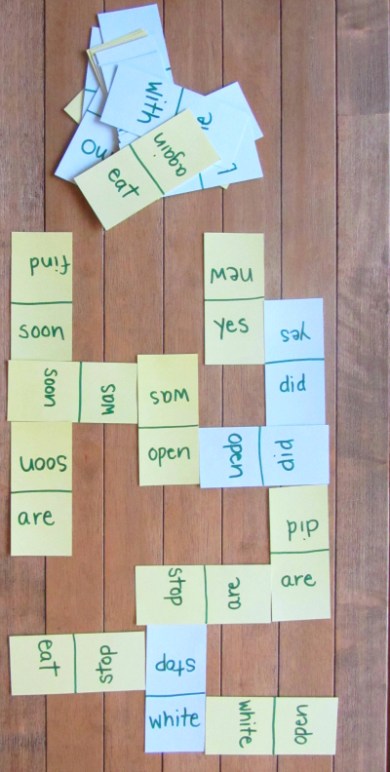 with
again
eat
find
soon
new
yes
yes
did
soon was
was
open
open did
soon
are
did
are
stop are
eat stop
stop
white
white open